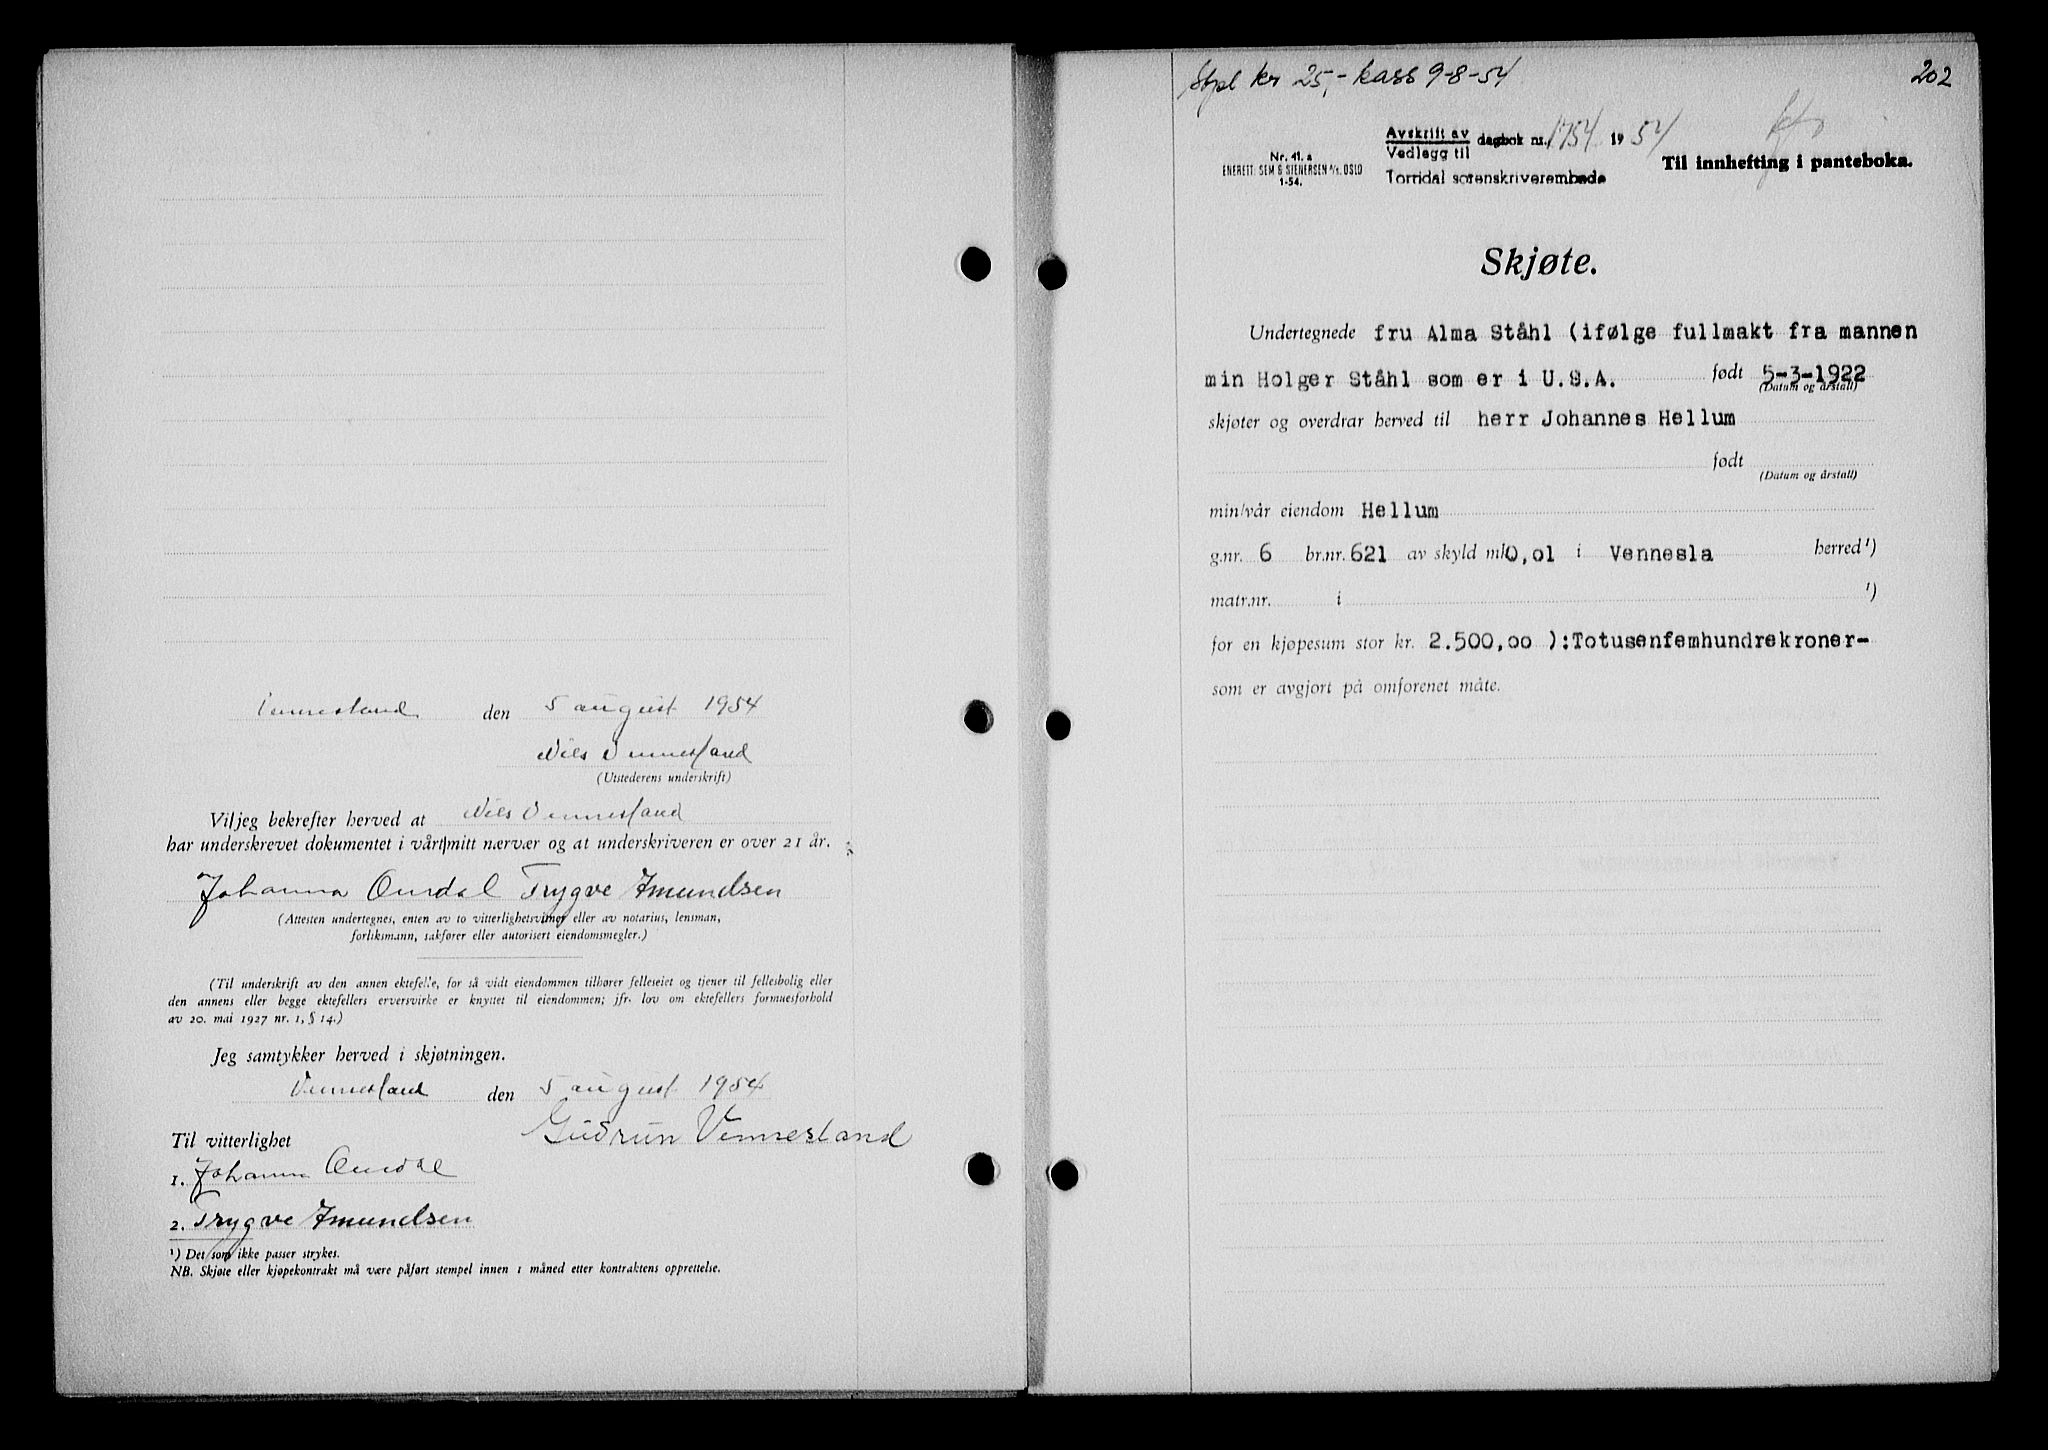 Vennesland den 5 august 1954
Nils Vennesland
(Utstederens underskrift)
Vi/jeg bekrefter herved at Nils Vennesland
har underskrevet dokumentet i vårt/mitt nærvær og at underskriveren er over 21 år.
Johanna Omdal Trygve Amundsen
(Attesten undertegnes, enten av to vitterlighetsvitner eller av notarius, lensman,
forliksmann, sakfører eller autorisert eiendomsmegler.)
(Til underskrift av den annen ektefelle, for så vidt eiendommen tilhører felleseiet og tjener til fellesbolig eller
den annens eller begge ektefellers erversvirke er knyttet til eiendommen; jfr. lov om ektefellers formuesforhold
av 20. mai 1927 nr. 1, § 14.)
Jeg samtykker herved i skjøtningen.
Vennesland den 5 august 1954
Gudrun Vennesland
Til vitterlighet
1. Johanna Omdal
2. Trygve Amundsen
¹) Det som ikke passer strykes.
NB. Skjøte eller kjøpekontrakt må være påført stempel innen 1 måned etter kontraktens opprettelse.
Stpl kr 25,- kass 9-8-54
202
Avskrift av dagbok nr. 1754 1954
Vedlegg til
Torridal sorenskriverembede
Nr. 41. a
ENERETT: SEM & STENERSEN A/S. OSLO
1-54.
Til innhefting i panteboka.
Skjøte.
Undertegnede fru Alma Ståhl (ifølge fullmakt fra mannen
min Holger Ståhl som er i U.S.A. født 5-3-1922
(Datum og årstall)
skjøter og overdrar herved til herr Johannes Hellum
født
(Datum og årstall)
min/vår eiendom Hellum
g.nr. 6 br.nr. 621 av skyld mk 0,01 i Vennesla herred¹)
matr.nr. i ¹)
for en kjøpesum stor kr. 2.500,00 ):Totusenfemhundrekroner-
som er avgjort på omforenet måte.